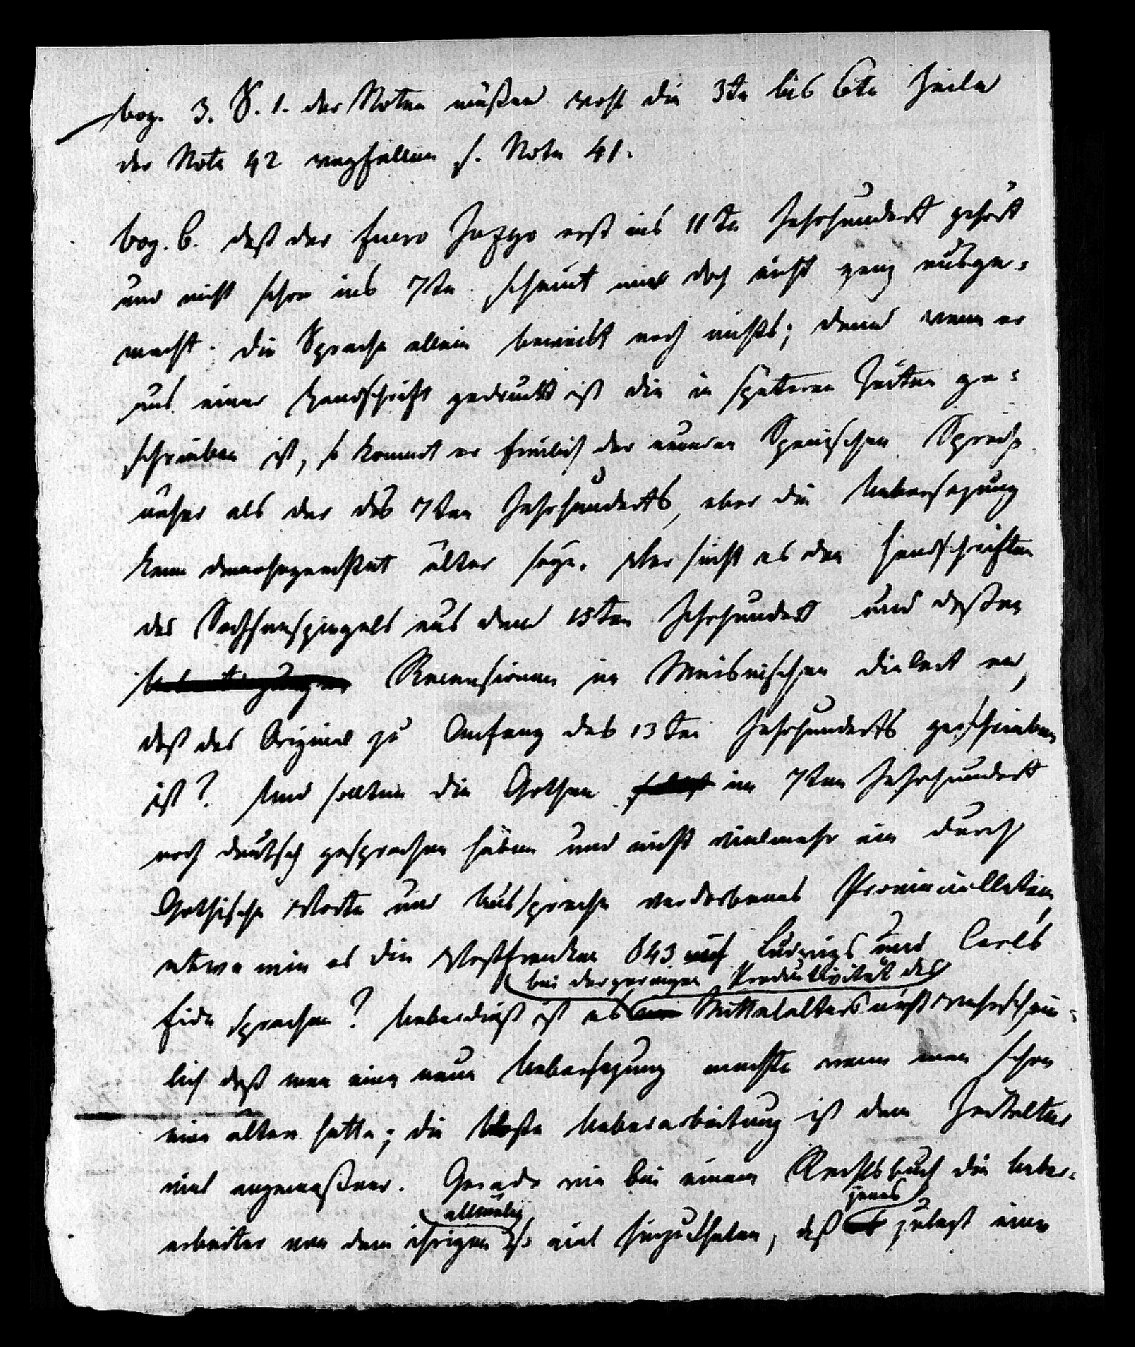 bog. 3. S. 1. der Noten müßen wohl die 3te bis 6te Zeile
der Note 42 wegfallen s. Note 41.
bog. 6. daß der fuero Juzgo erst ins 11te Jahrhundert gehört
und nicht schon ins 7te scheint mir doch nicht ganz ausge-
macht. die Sprache allein beweist noch nichts; denn wenn er
aus einer Handschrift gedruckt ist die in späteren Zeiten ge-
schrieben ist, so kommt er freilich der neueren Spanischen Sprache
näher als der des 7ten Jahrhunderts, aber die Uebersetzung
kann demohngeachtet älter seyn. Wer sieht es den Handschriften
des Sachsenspiegels aus dem 15ten Jahrhundert und deßen
Recensionen im Meisnischen Dialect an,
daß das Original zu Anfang des 13ten Jahrhunderts geschrieben
ist? Und sollten die Gothen im 7ten Jahrhundert
noch deutsch gesprochen haben und nicht vielmehr ein durch
Gothische Worte und Aussprache verdorbenes Provinciallatein,
etwa wie es die Westfranken 843 auf Ludwigs und Carls
bei der geringen Productivität des
Eide sprachen? Ueberdieß ist es Mittelalters nicht wahrschein-
lich daß man eine neue Uebersetzung machte wenn man schon
eine alte hatte; die bloße Ueberarbeitung ist dem Zeitalter
viel angemeßner. Gerade wie bei einem Rechtsbuch die Ueber-
allmälig jenes
arbeiter von dem ihrigen so viel hinzuthaten, daß zuletzt eine